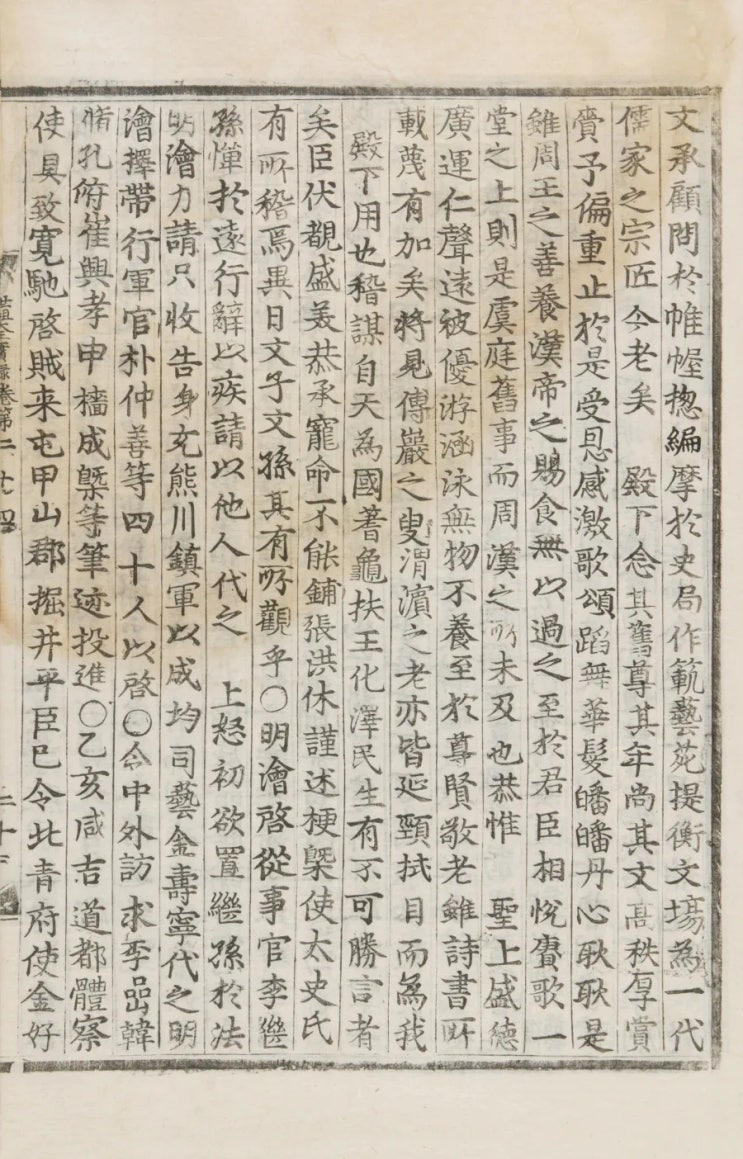 文承顧問於帷幄摠編摩於史局作範藝苑提衡文場為一代
儒家之宗匠今老矣 殿下念其舊尊其年尚其文高秩厚賞
賚予偏重止於是受恩感激歌頌蹈舞華髮皤皤丹心耿耿是
雖周王之善養漢帝之賜食無以過之至於君臣相悅賡歌一
堂之上則是虞庭舊事而周漢之所未及也恭惟 聖上盛德
廣運仁聲遠被優游涵泳無物不養至於尊賢敬老雖詩書所
載蔑有加矣將見傅巖之叟渭濱之老亦皆延頸拭目而為我
殿下用也稽謀自天為國蓍龜扶王化澤民生有不可勝言者
矣臣伏覩盛美恭承寵命不能鋪張洪休謹述梗槩使太史氏
有所稽焉異日文子文孫其有所觀乎○明澮啓從事官李繼
孫憚於遠行辭以疾請以他人代之 上怒初欲置繼孫於法
明澮力請只收告身充熊川鎭軍以成均司藝金壽寧代之明
澮擇帶行軍官朴仲善等四十人以啓○令中外訪求李嵒韓
脩孔俯崔興孝申檣成槩等筆迹投進○乙亥咸吉道都體察
使具致寬馳啓賊来屯甲山郡掘井平臣已令北青府使金好
實錄卷第二十四